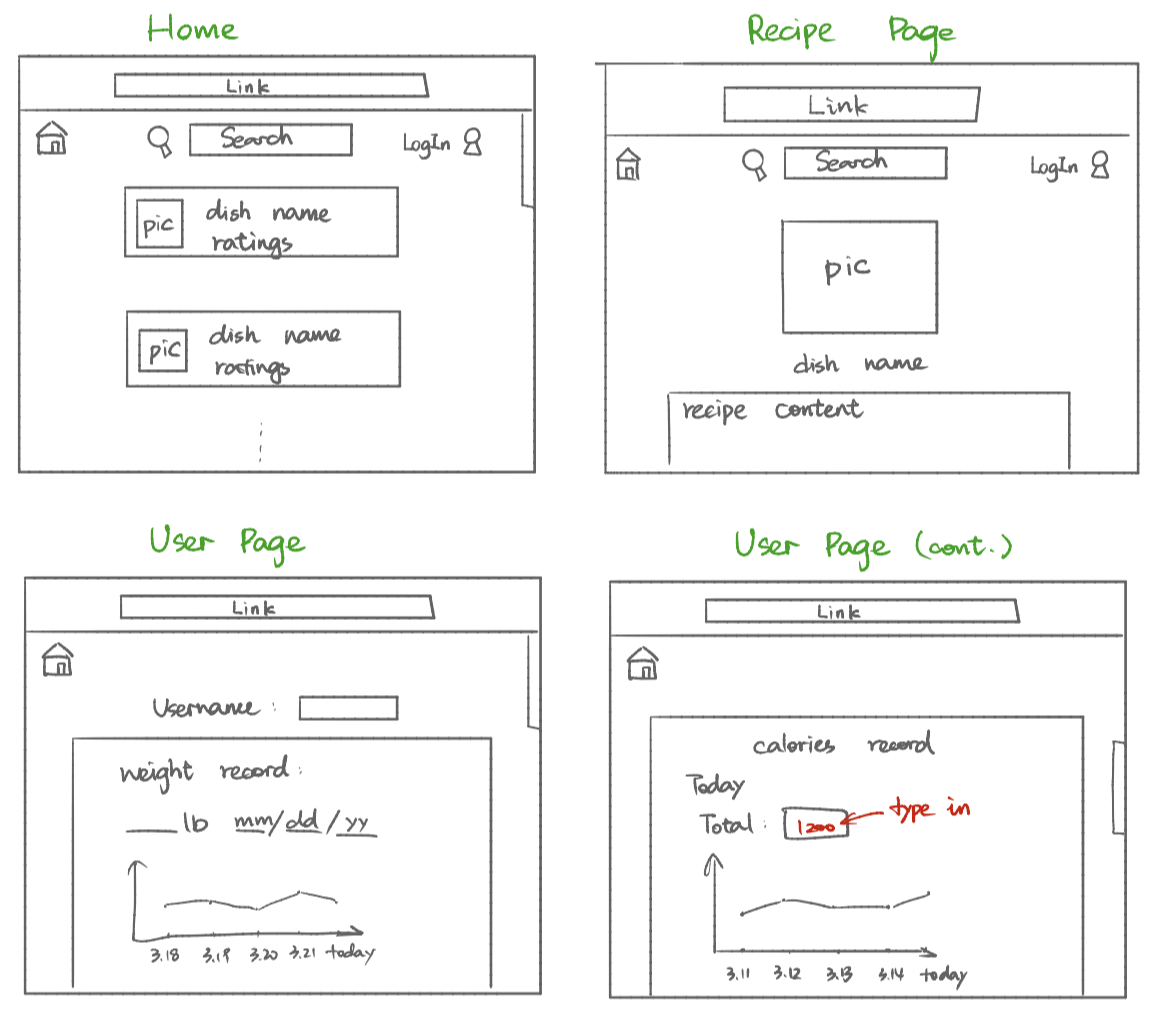 Home
Link
Search
LogIn
pic
dish name
ratings
pic
dish name
ratings
Recipe Page
Link
Search
LogIn
pic
dish name
recipe content
User Page
Link
Username :
weight record :
lb mm/dd/yy
3.18 3.19 3.20 3.21 today
User Page (cont.)
Link
calories record
Today
Total : 1200 type in
3.11 3.12 3.13 3.14 today